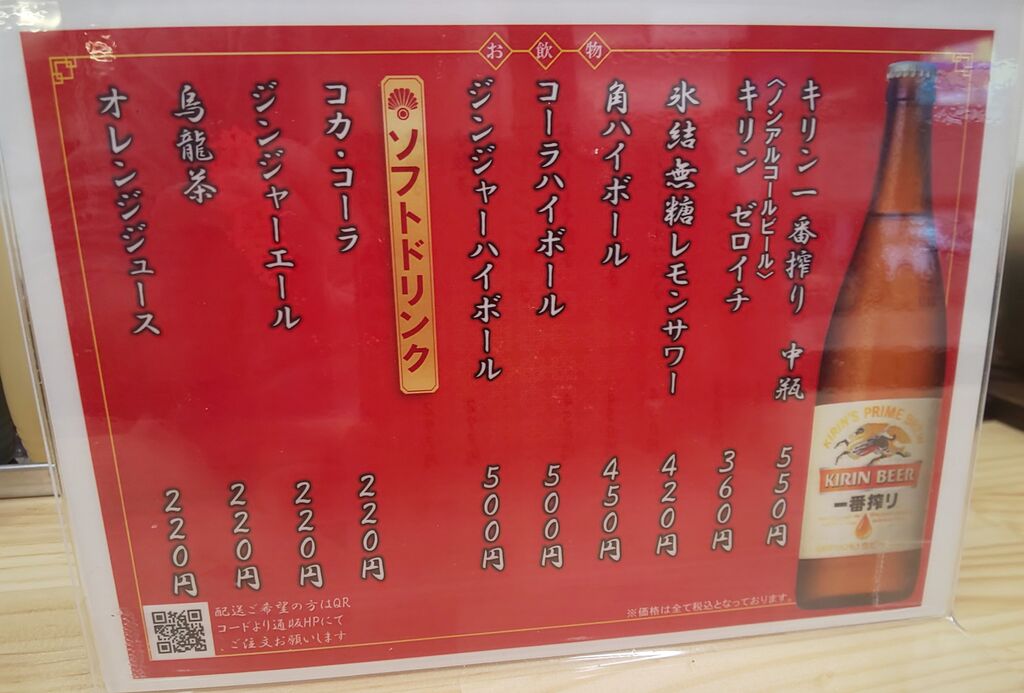 お飲物
キリン一番搾り 中瓶 550円
〈ノンアルコールビール〉
キリン ゼロイチ 360円
氷結無糖レモンサワー 420円
角ハイボール 450円
コーラハイボール 500円
ジンジャーハイボール 500円
ソフトドリンク
コカ・コーラ 220円
ジンジャーエール 220円
烏龍茶 220円
オレンジジュース 220円
KIRIN'S PRIME BREW
KIRIN BEER
一番搾り
※価格は全て税込となっております。
配送ご希望の方はQR
コードより通販HPにて
ご注文お願いします